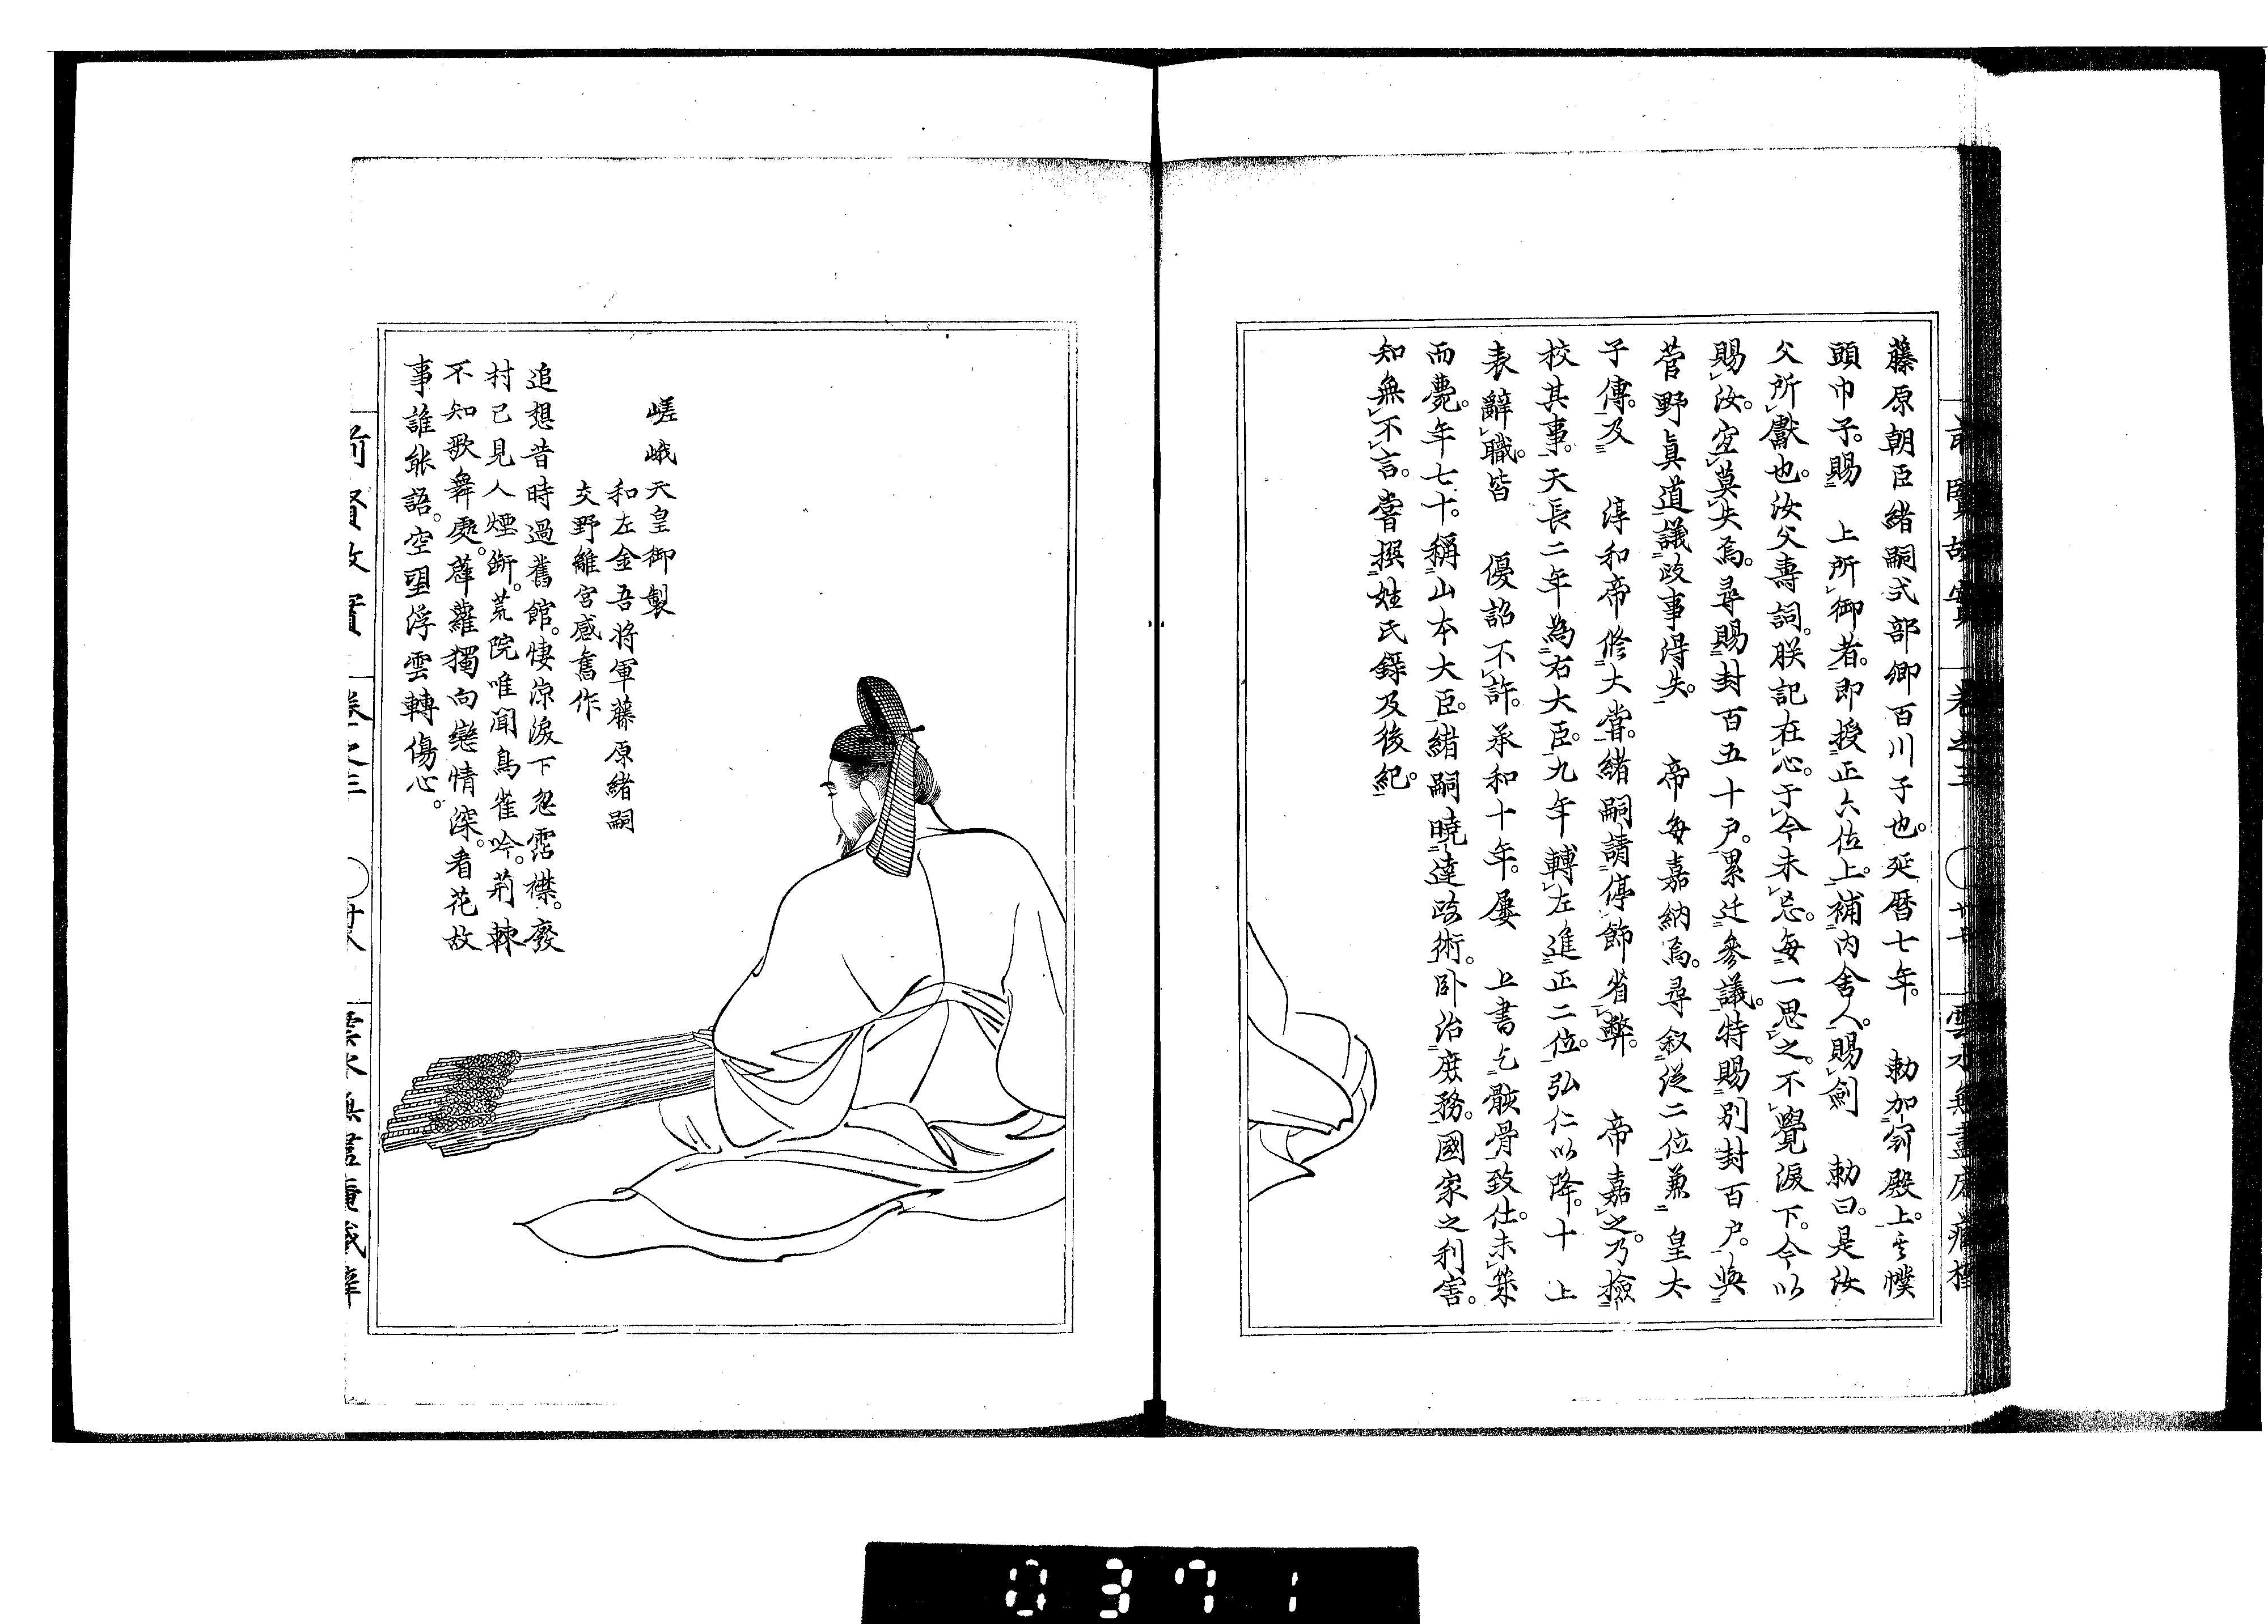 藤原朝臣緒嗣式部卿百川子也。延暦七年。　勅加冠殿上。其幞
頭巾子。賜　上所御者。即授正六位上。補内舍人。賜劍　勅曰。是汝
父所獻也。汝父壽詞。朕記在心。于今未忘。每一思之。不覺淚下。今以
賜汝。宜莫失焉。尋賜封百五十戸。累迁參議。特賜別封百戸。與
菅野真道議政事得失。　帝每嘉納焉。尋叙從二位兼　皇太
子傳。及　淳和帝脩大嘗。緒嗣請停飾省弊。　帝嘉之。乃撿
校其事。天長二年為右大臣。九年轉左進正二位。弘仁以降。十　上
表辭職。皆　優詔不許。承和十年。屢　上書乞骸骨致仕。未幾
而薨。年七十。稱山本大臣。緒嗣曉達政術。臥治庶務。國家之利害。
知無不言。嘗撰姓氏錄及後紀。
前賢故實　卷之三　廿七　雲水無盡庵藏梓
嵯峨天皇御製
和左金吾将軍藤原緒嗣
交野離宮感舊作
追想昔時過舊館。悽涼淚下忽霑襟。廢
村已見人煙斷。荒院唯聞鳥雀吟。荊棘
不知歌舞處。薜蘿獨向戀情深。看花故
事誰能語。空望浮雲轉傷心。
前賢故實　卷之三　廿八
0371